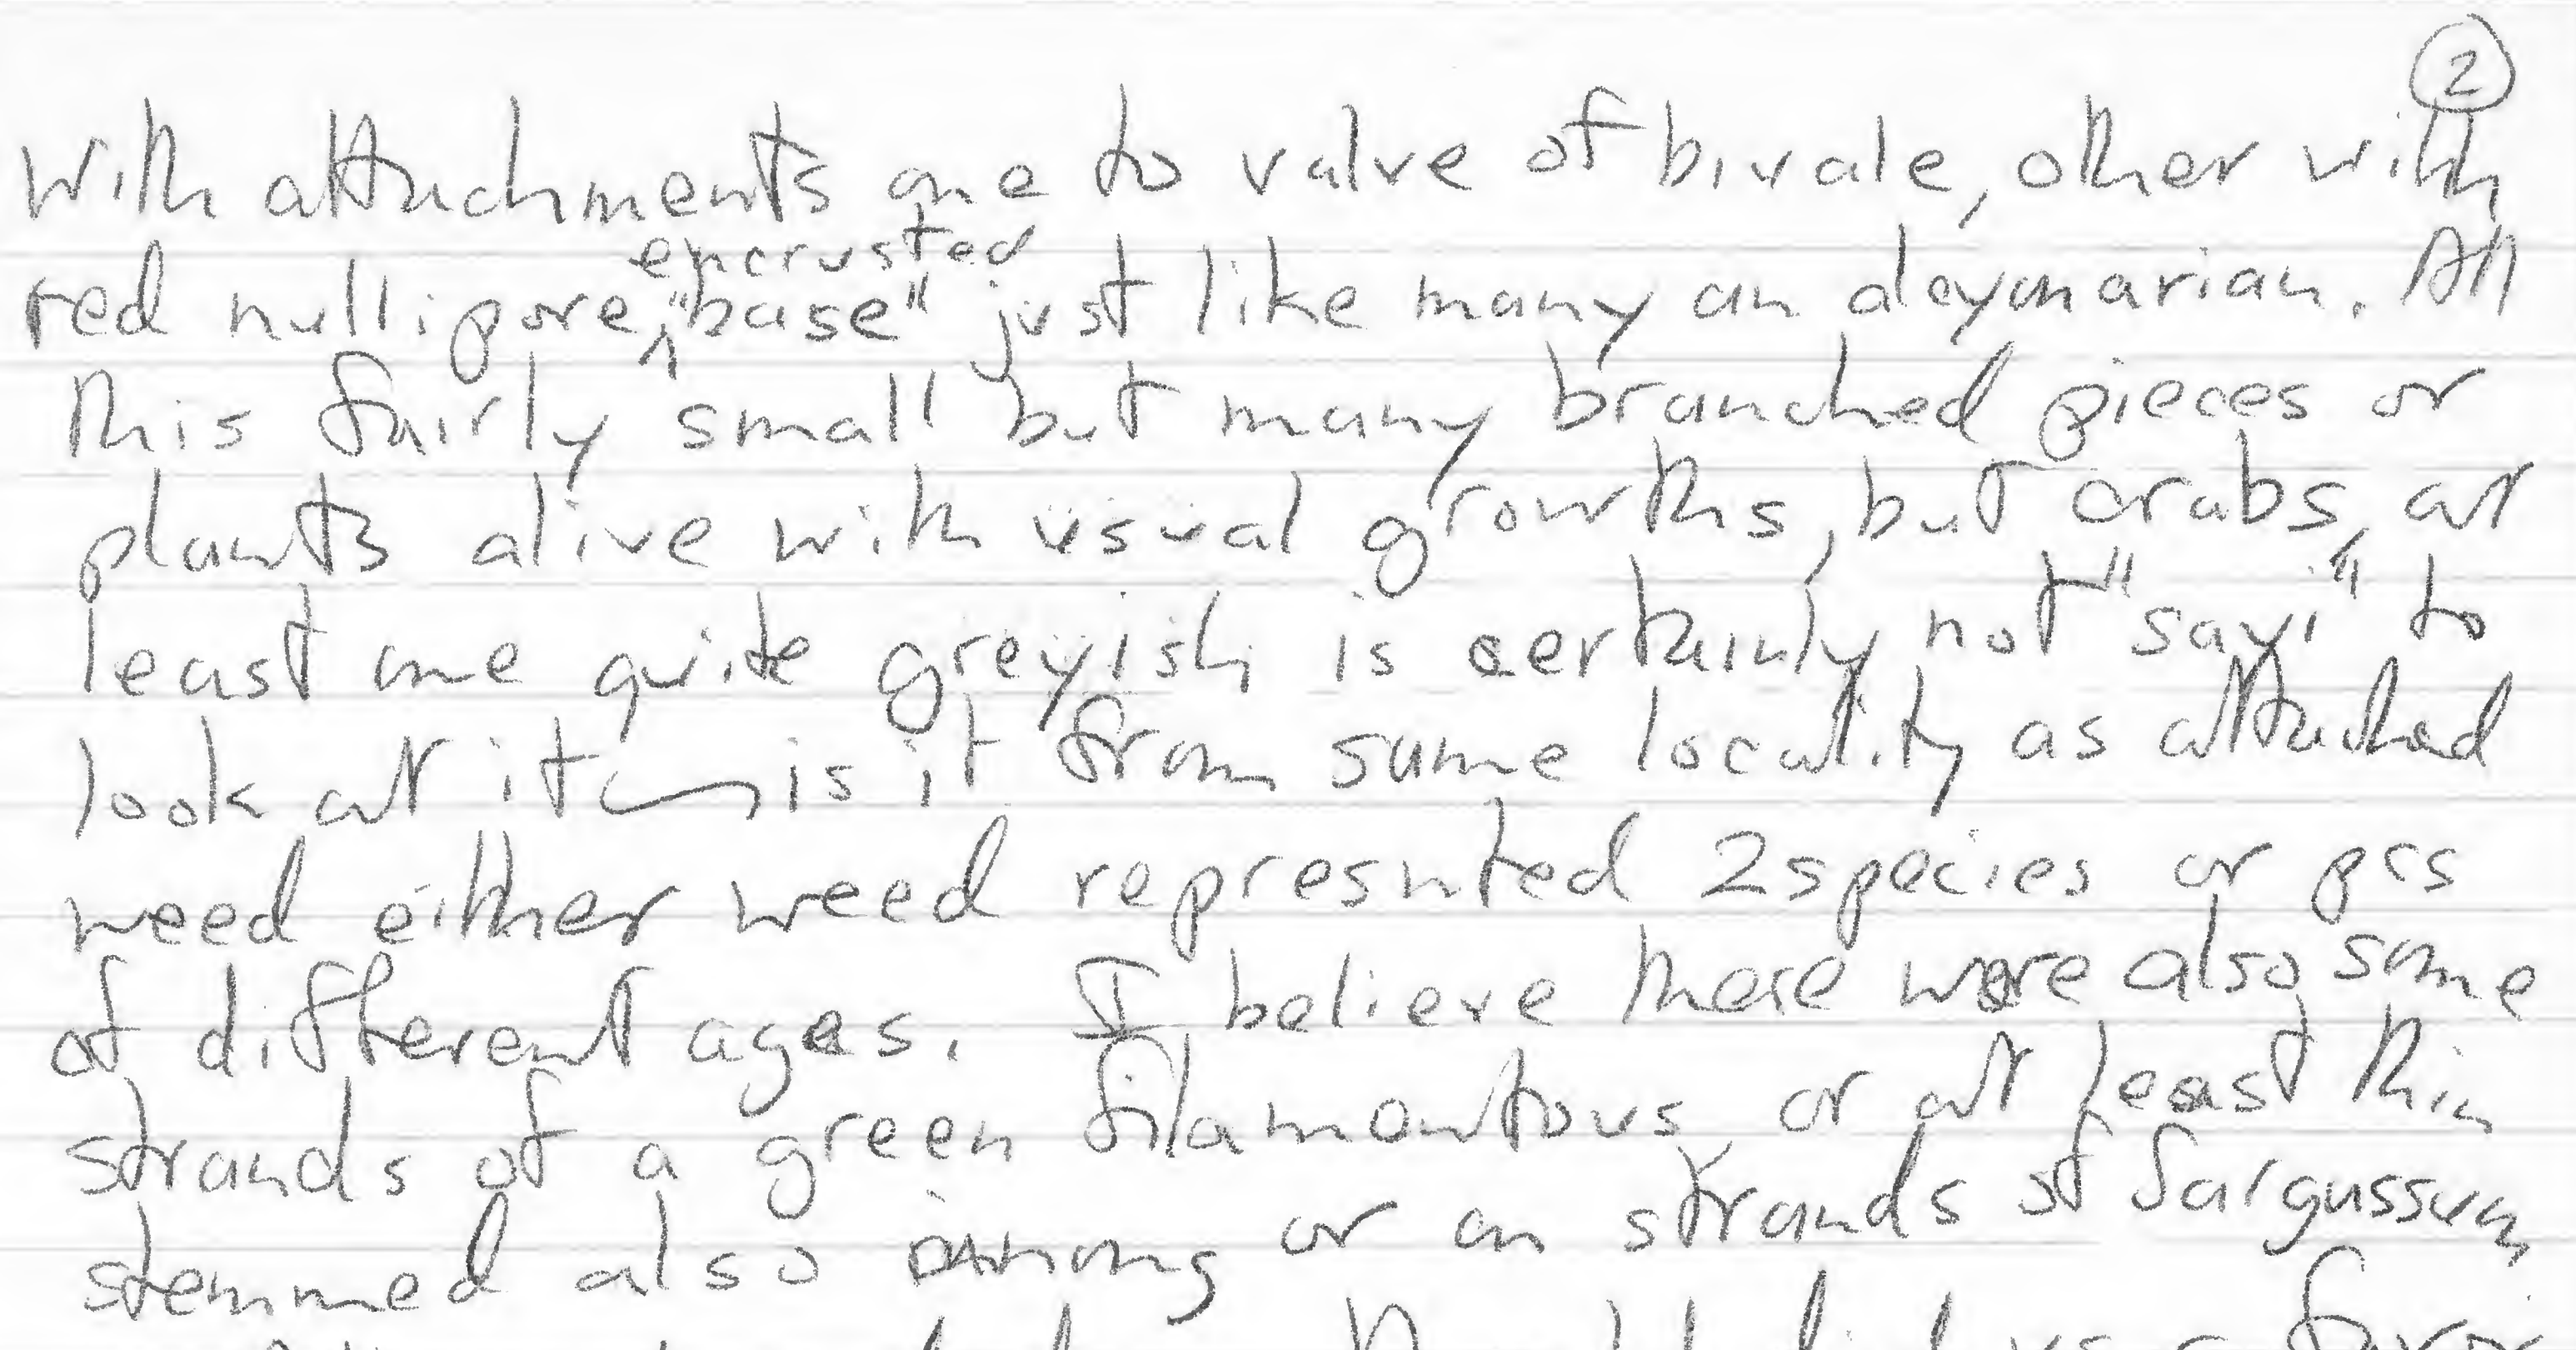 2
With attachments one to valve of bivale, other with
red nullipore, encrusted "base" just like many an alcyonarian. All
this fairly small but many branched pieces or
plants alive with usual growths, but crabs, at
least one quite greyish is certainly not "sayi" to
look at it is it from same locality as attached
weed either weed represnted 2 species or pcs
of different ages. I believe there were also some
strands of a green filamentous, or at least thin
stemmed also among or on strands of Sargassum